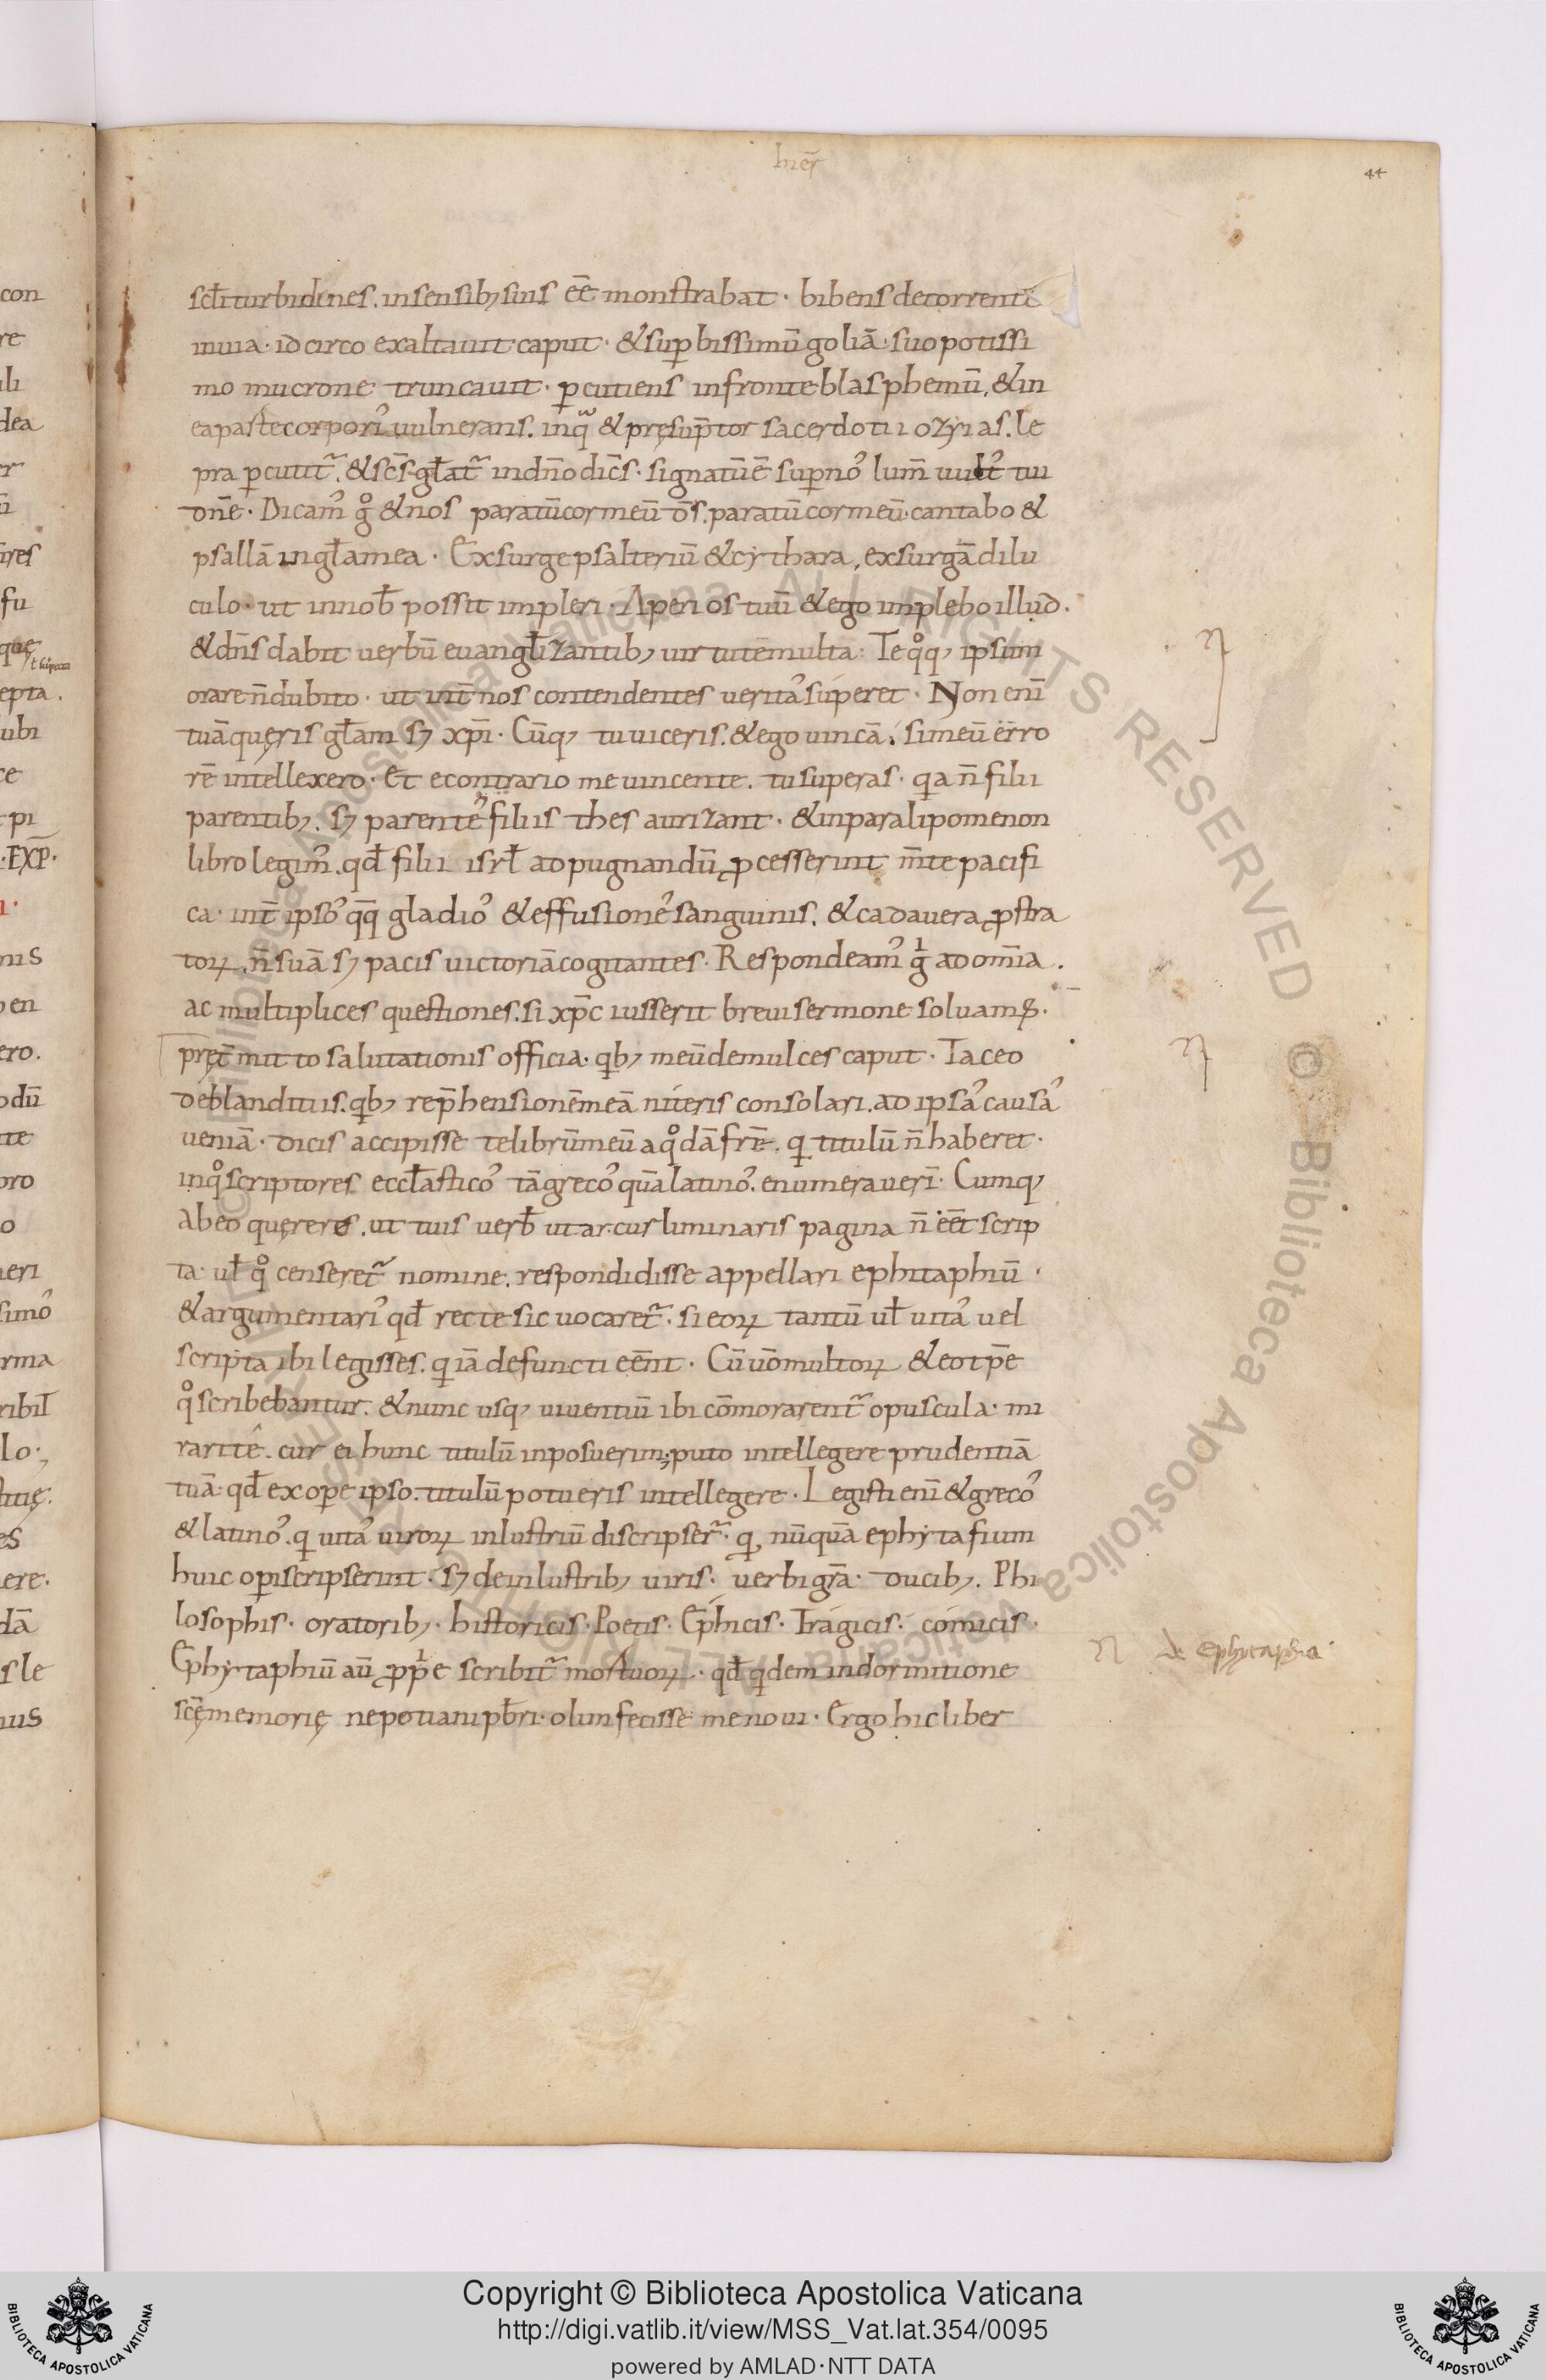 hieR̄
44
scłi turbidines. in sensib; suis eē monstrabat · bibens de torrente
in uia · idcirco exaltauit caput · & sup̱bissimū goliā · suo potissi
mo mucrone truncauit · p̱cutiens in fronte blasphemū, & in
ea parte corporis uulnerans. in qua & pręsūptor sacerdotii ozyias. le
pra p̱cutit̃. & sc̄s głat̃ in dn̄o dic̄s · signatū ē sup̱ nos lum̄ uult' tui
dn̄e · Dicam' g̊ & nos paratū cor meū d̄s. paratū cor meū cantabo &
psallā in gła mea · Exsurge psalteriū & cythara, exsurgā dilu
culo · ut in nob̄ possit impleri · Aperi os tuū & ego implebo illud.
& dn̄s dabit uerbū euangłizantib; uirtute multa: Te q̊q; ipsum
orare n̄ dubito · ut int̄ nos contendentes ueritas superet · Non enī
tuā queris głam s; xp̄i · Cūq; tu uiceris. & ego uincā. si meū erro
rē intellexero · Et econtrario me uincente. tu superas · qa n̄ filii
parentib;. s; parentes filiis thesaurizant · & in paralipomenon
libro legim'. qđ filii isrł ad pugnandū p̱cesserint m̄te pacifi
ca · int̄ ipsos qq̄ gladios & effusiones sanguinis. & cadauera p̱stra
toꝝ, n̄ suā s; pacis uictoriā cogitantes · Respondeam' g̍ ad om̄ia.
ac multiplices questiones. si xp̄c iusserit breui sermone soluam9.
pręt̄mitto salutationis officia · qb; meū demulces caput · Taceo
de blanditiis. qb; rep̄hensionē meā niteris consolari. ad ipsā causā
ueniā · dicis accipisse te librū meū a q̊dā fr̄e. qi titulū n̄ haberet ·
in q̊ scriptores eccłasticos tā grecos quā latinos. enumeraueri · Cumq;
ab eo quęreres. ut tuis uerb̄ utar. cur liminaris pagina n̄ eēt scrip
ta · uł q̊ censeret̃ nomine. respondidisse appellari ephitaphiū ·
& argumentaris qđ recte sic uocaret̃ · si eoꝝ tantū uł uitas uel
scripta ibi legisses. qi iā defuncti eēnt · Cū uō multoꝝ & eo tp̄e
q̊ scribebantur. & nunc usq; uiuentiū ibi cōmorarent̃ opuscula · mi
rari te. cur ei hunc titulū inposuerim; puto intellegere prudentiā
tuā · qđ ex op̱e ipso. titulū potueris intellegere · Legisti enī & grecos
& latinos. qi uitas uiroꝝ inlustriū discripser̃ · q nūquā ephytafium
huic op̱i scripserint · s; de inlustrib; uiris · uerbi gr̄a · ducib;. Phi
losophis · oratorib; · historicis · Poetis · Ephicis · Tragicis · comicis ·
Ephytaphiū aū p̱p̍e scribit̃ mortuoꝝ · qđ qidem in dormitione
sc̄ę memorię nepotiani pb̄ri · olim fecisse me noui · Ergo hic liber
de Ephytaphio
Copyright © Biblioteca Apostolica Vaticana
http://digi.vatlib.it/view/MSS_Vat.lat.354/0095
powered by AMLAD·NTT DATA
BIBLIOTECA APOSTOLICA VATICANA
BIBLIOTECA APOSTOLICA VATICANA